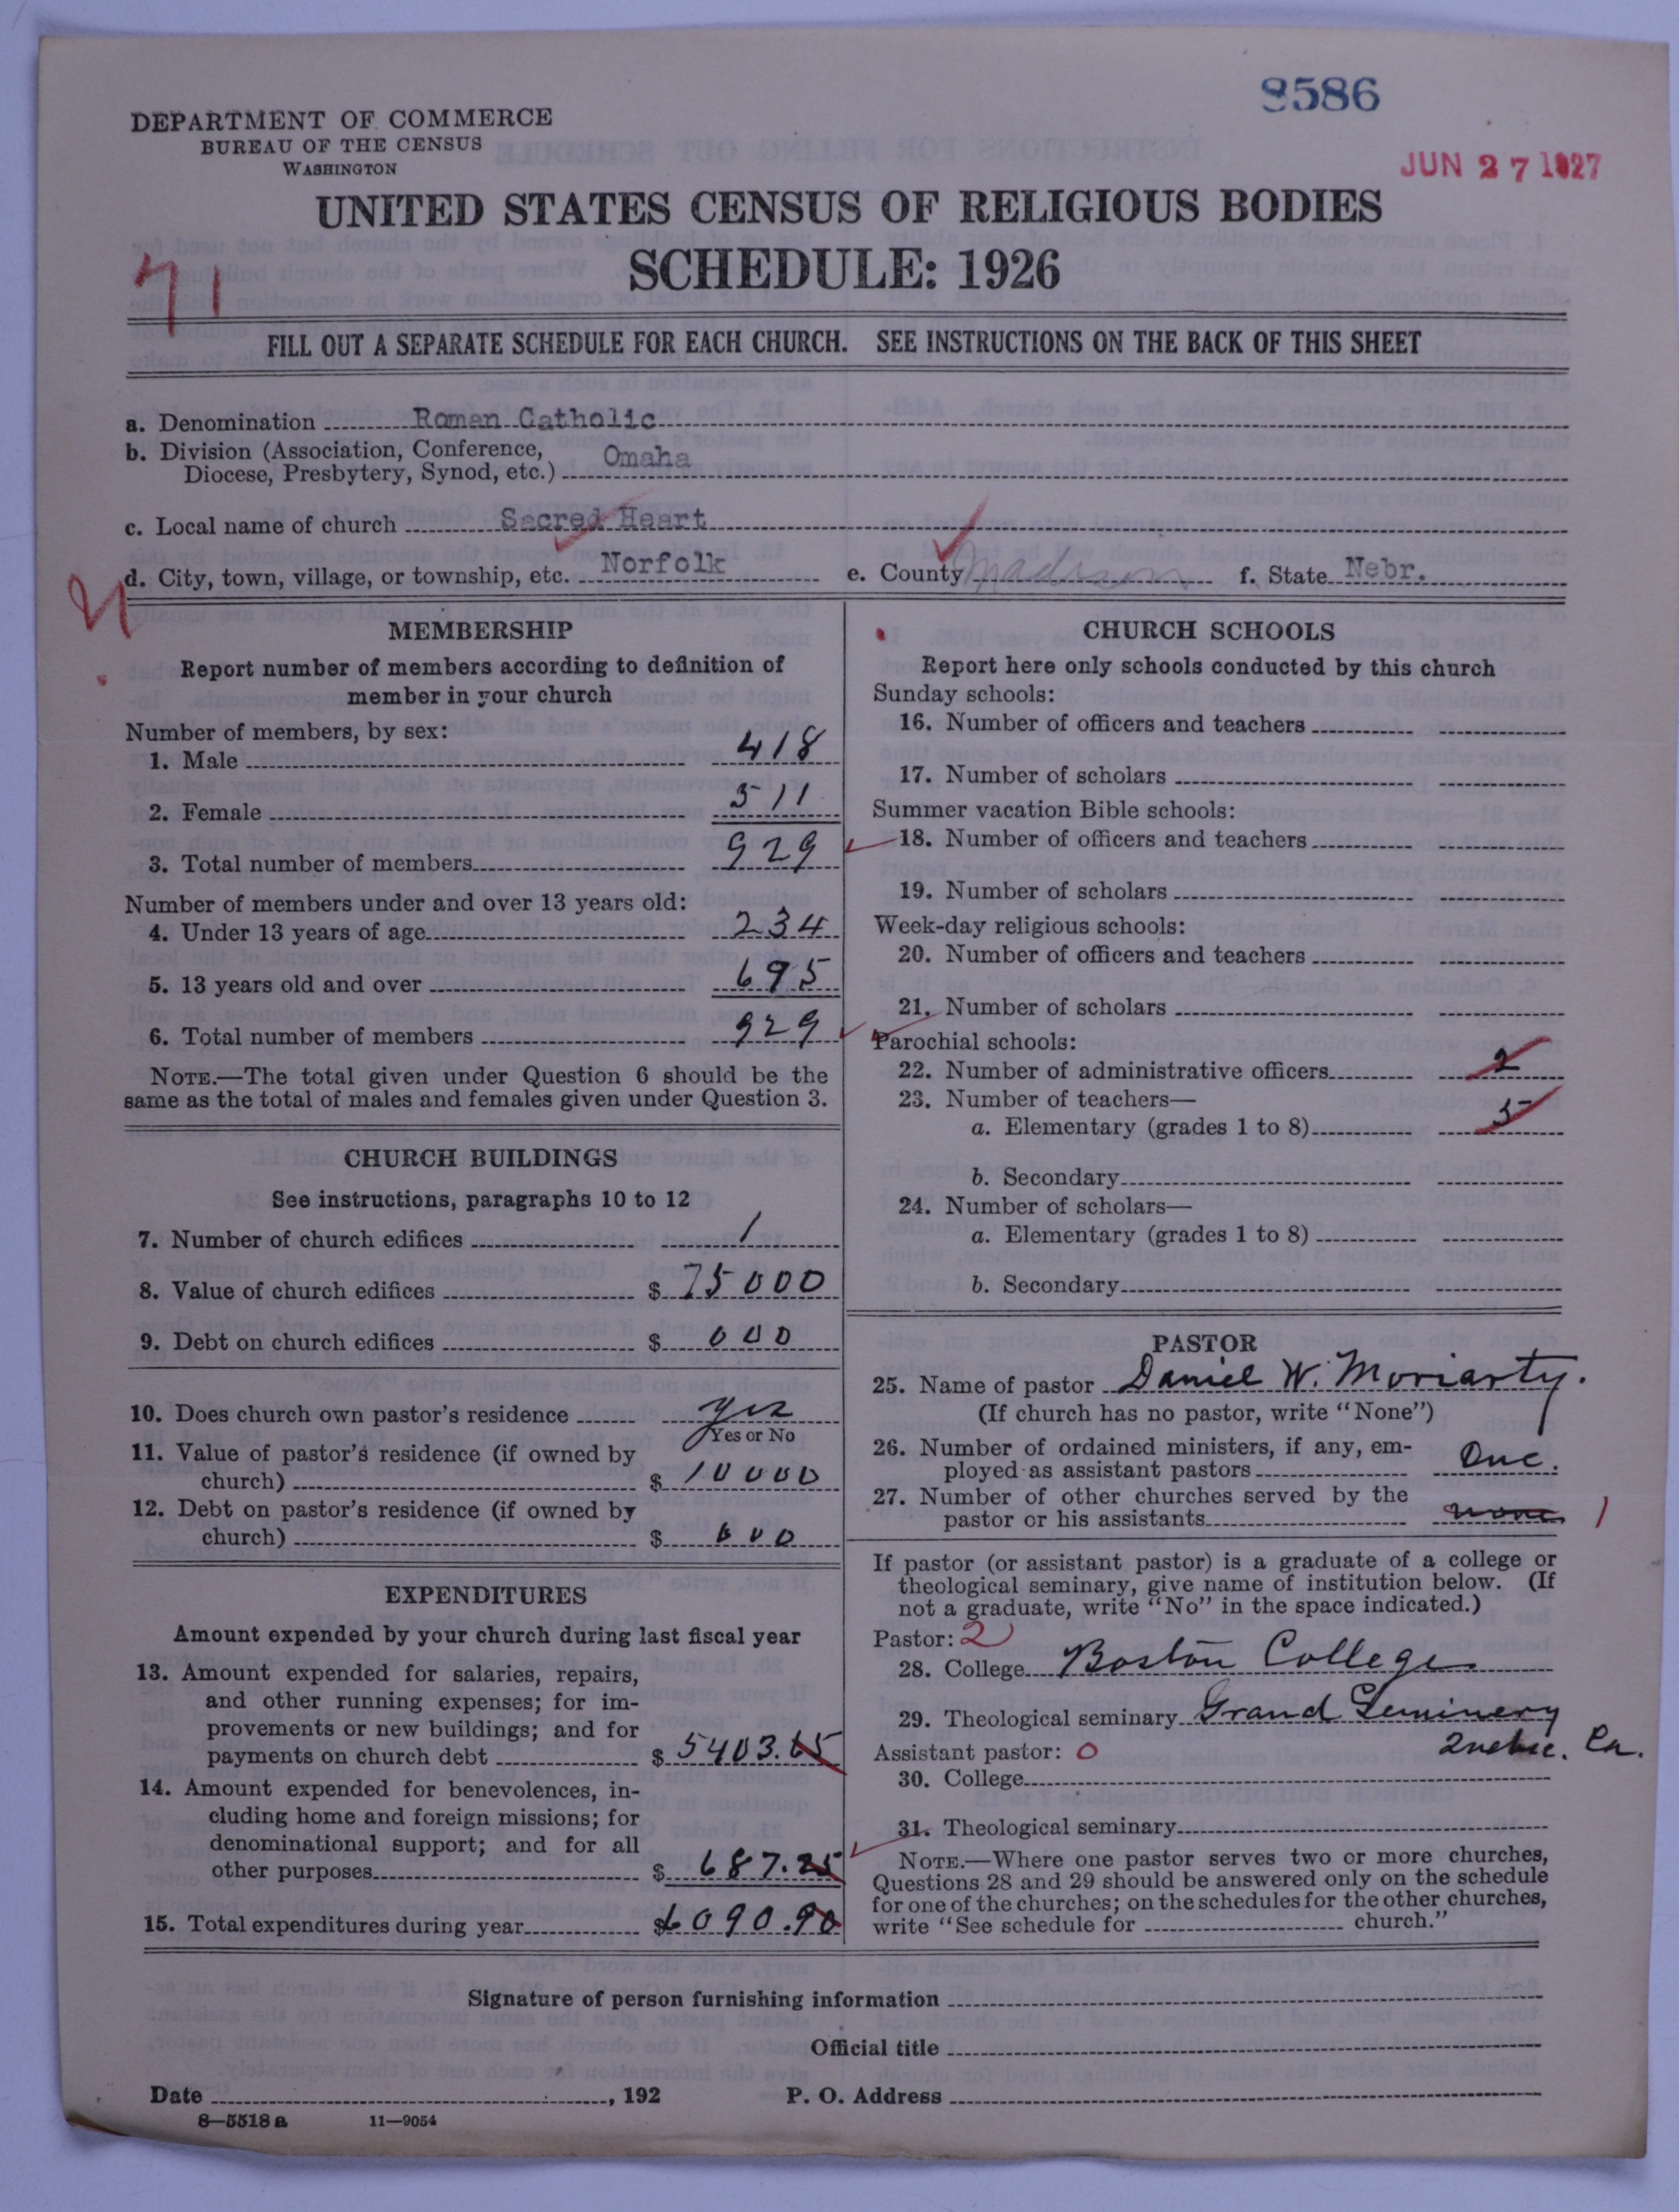 8586
DEPARTMENT OF COMMERCE
BUREAU OF THE CENSUS
WASHINGTON
JUN 27 1927
UNITED STATES CENSUS OF RELIGIOUS BODIES
SCHEDULE: 1926
71
FILL OUT A SEPARATE SCHEDULE FOR EACH CHURCH. SEE INSTRUCTIONS ON THE BACK OF THIS SHEET
a. Denomination Roman Catholic
b. Division (Association, Conference, Diocese, Presbytery, Synod, etc.) Omaha
c. Local name of church Sacred Heart
d. City, town, village, or township, etc. Norfolk e. County Madison f. State Nebr.
MEMBERSHIP
Report number of members according to definition of
member in your church
Number of members, by sex:
1. Male 418
2. Female 511
3. Total number of members 929
Number of members under and over 13 years old:
4. Under 13 years of age 234
5. 13 years old and over 695
6. Total number of members 929
NOTE.—The total given under Question 6 should be the
same as the total of males and females given under Question 3.
CHURCH BUILDINGS
See instructions, paragraphs 10 to 12
7. Number of church edifices 1
8. Value of church edifices $ 75000
9. Debt on church edifices $ 000
10. Does church own pastor's residence yes
Yes or No
11. Value of pastor's residence (if owned by
church) $ 10000
12. Debt on pastor's residence (if owned by
church) $ 000
EXPENDITURES
Amount expended by your church during last fiscal year
13. Amount expended for salaries, repairs,
and other running expenses; for im-
provements or new buildings; and for
payments on church debt $ 5403.65
14. Amount expended for benevolences, in-
cluding home and foreign missions; for
denominational support; and for all
other purposes $ 687.25
15. Total expenditures during year $ 6090.90
CHURCH SCHOOLS
Report here only schools conducted by this church
Sunday schools:
16. Number of officers and teachers
17. Number of scholars
Summer vacation Bible schools:
18. Number of officers and teachers
19. Number of scholars
Week-day religious schools:
20. Number of officers and teachers
21. Number of scholars
Parochial schools:
22. Number of administrative officers 2
23. Number of teachers—
a. Elementary (grades 1 to 8) 5
b. Secondary
24. Number of scholars—
a. Elementary (grades 1 to 8)
b. Secondary
PASTOR
25. Name of pastor Daniel W. Moriarty.
(If church has no pastor, write "None")
26. Number of ordained ministers, if any, em-
ployed as assistant pastors One.
27. Number of other churches served by the
pastor or his assistants none 1
If pastor (or assistant pastor) is a graduate of a college or
theological seminary, give name of institution below. (If
not a graduate, write "No" in the space indicated.)
Pastor: 2
28. College Boston College
29. Theological seminary Grand Seminery
Quebec. Ca.
Assistant pastor: 0
30. College
31. Theological seminary
NOTE.—Where one pastor serves two or more churches,
Questions 28 and 29 should be answered only on the schedule
for one of the churches; on the schedules for the other churches,
write "See schedule for church."
Signature of person furnishing information
Official title
Date , 192 P. O. Address
8—5518 a 11—9054